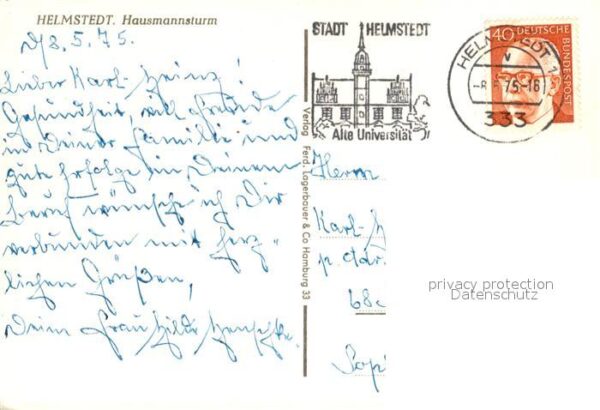 HELMSTEDT. Hausmannsturm
8.5.75.
Lieber Karl-Heinz!
Gesundheit, viel Freude
in Deiner Familie und
gute Erfolge in Deinem
Beruf wünsche ich Dir
verbunden mit herz-
lichen Grüßen,
Deine Frau Hilde
Verlag Ferd. Lagerbauer & Co Hamburg 33
STADT HELMSTEDT
Alte Universität
HELMSTEDT 1
v
-8. 75-16
333
40 DEUTSCHE BUNDESPOST
Herrn
Karl-H
p. Adr.
68
privacy protection
Datenschutz